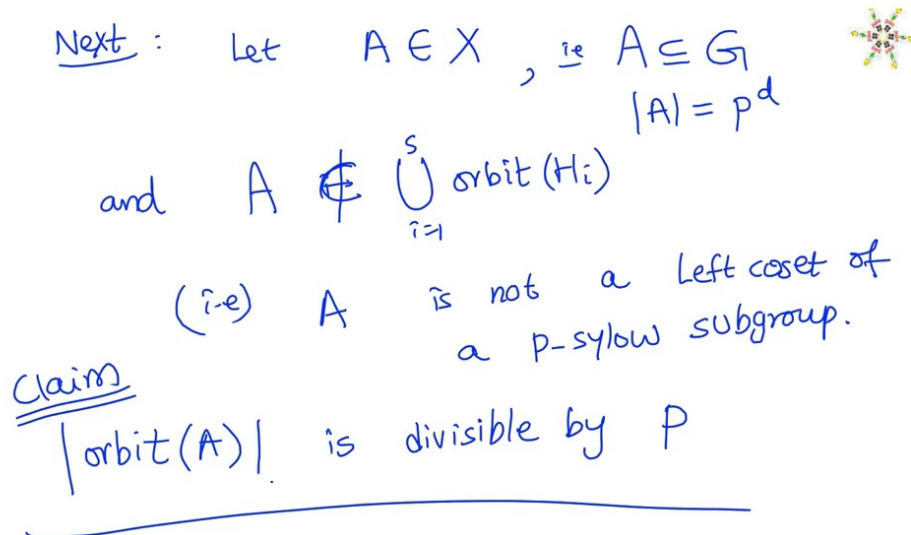 Next : Let A ∈ X , ie A ⊆ G
|A| = p^d
and A ∉ ⋃_{i=1}^{s} orbit (Hi)
(i-e) A is not a left coset of
a p-sylow subgroup.
Claim
|orbit (A)| is divisible by p